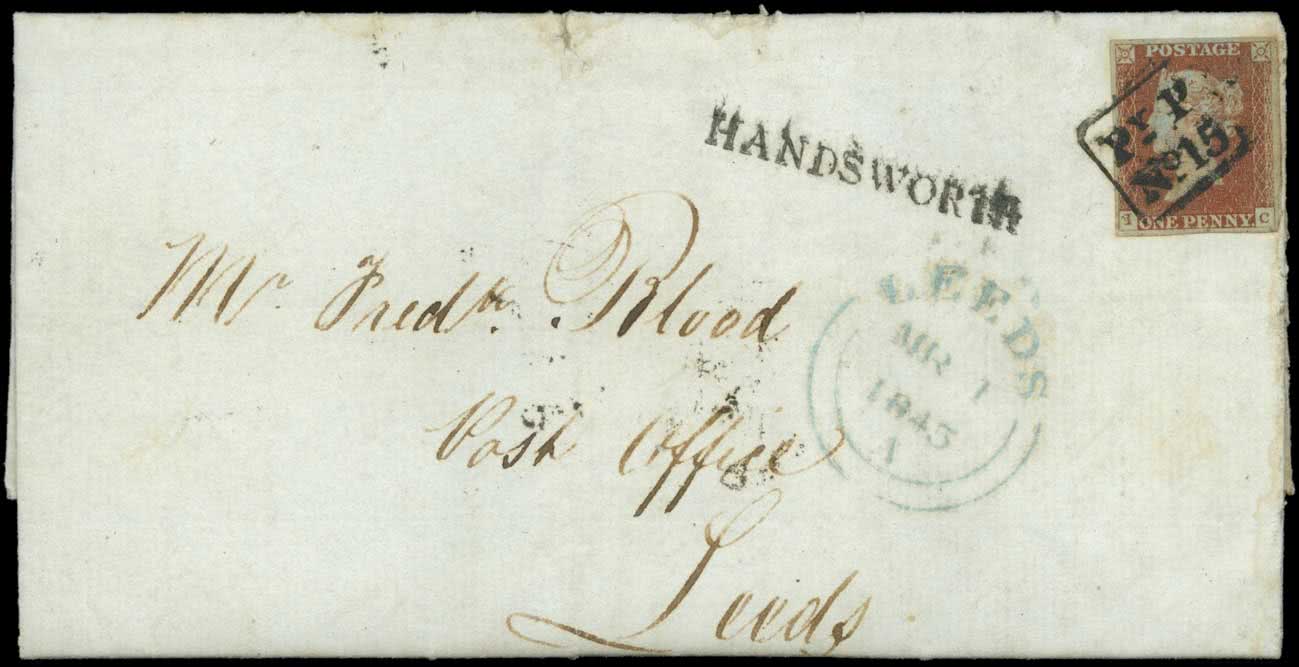 POSTAGE
Py P
No. 15
I C
ONE PENNY
HANDSWORTH
LEEDS
MR 1
1845
A
Mr. Fredk. Blood
Post Office
Leeds